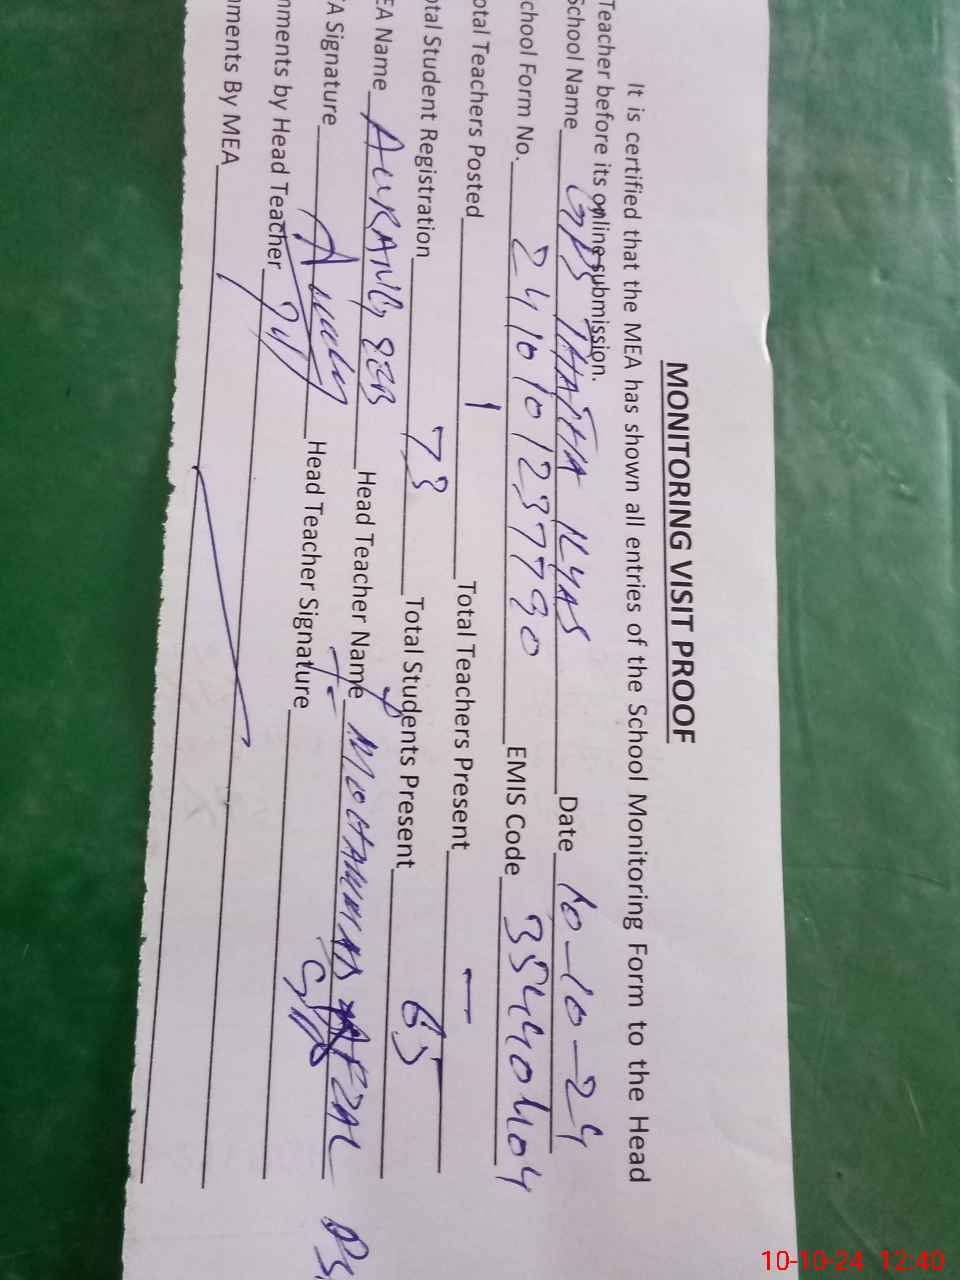 MONITORING VISIT PROOF
It is certified that the MEA has shown all entries of the School Monitoring Form to the Head
Teacher before its online submission.
School Name GPS THATHA ILYAS Date 10-10-24
chool Form No. EMIS Code 35440404
otal Teachers Posted 1 Total Teachers Present
otal Student Registration 73 Total Students Present 65
EA Name AURANGZEB Head Teacher Name MOHAMMAD AFZAL
A Signature Head Teacher Signature
mments by Head Teacher
mments By MEA
10-10-24 12:40